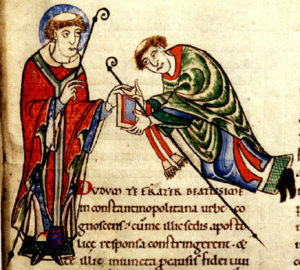 DUDUM TE FRATER BEATISSIME
in constantinopolitana urbe co
gnoscens· cū me illic sedis aposto
lice responsa constringerent· & te
illic iniuncta p causis fidei uui